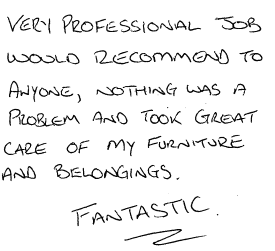 VERY PROFESSIONAL JOB
WOULD RECOMMEND TO
ANYONE, NOTHING WAS A
PROBLEM AND TOOK GREAT
CARE OF MY FURNITURE
AND BELONGINGS.
FANTASTIC.